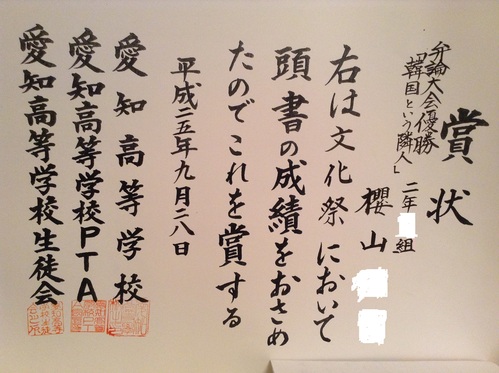 賞状
弁論大会優勝
「韓国という隣人」
二年 組
櫻山
右は文化祭において
頭書の成績をおさめ
たのでこれを賞する
平成二五年九月二八日
愛知高等学校
愛知高等学校PTA
愛知高等学校生徒会